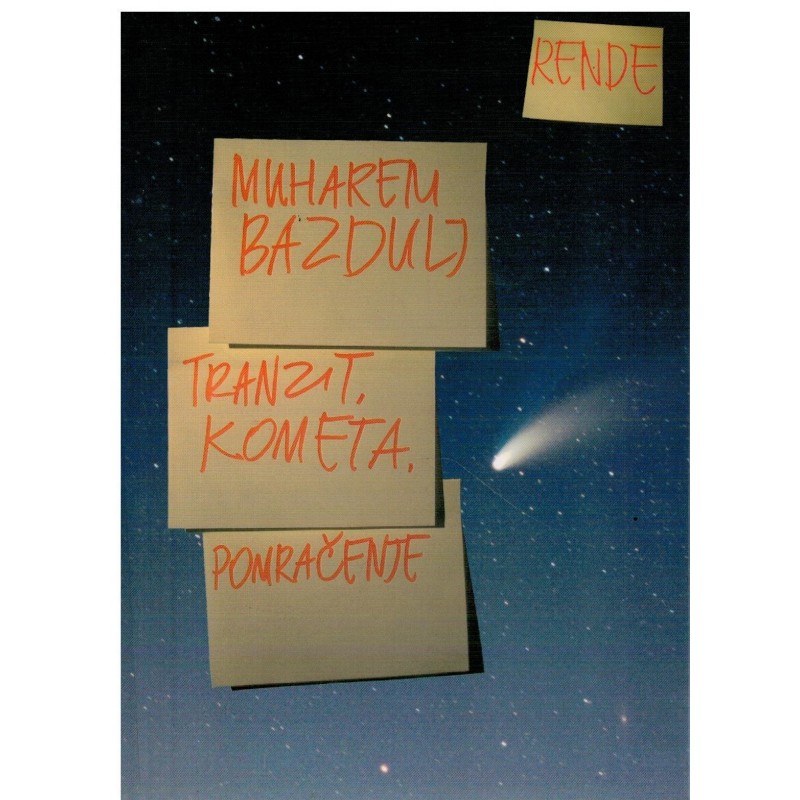 RENDE
MUHAREM
BAZDULJ
TRANZIT,
KOMETA,
POMRAČENJE